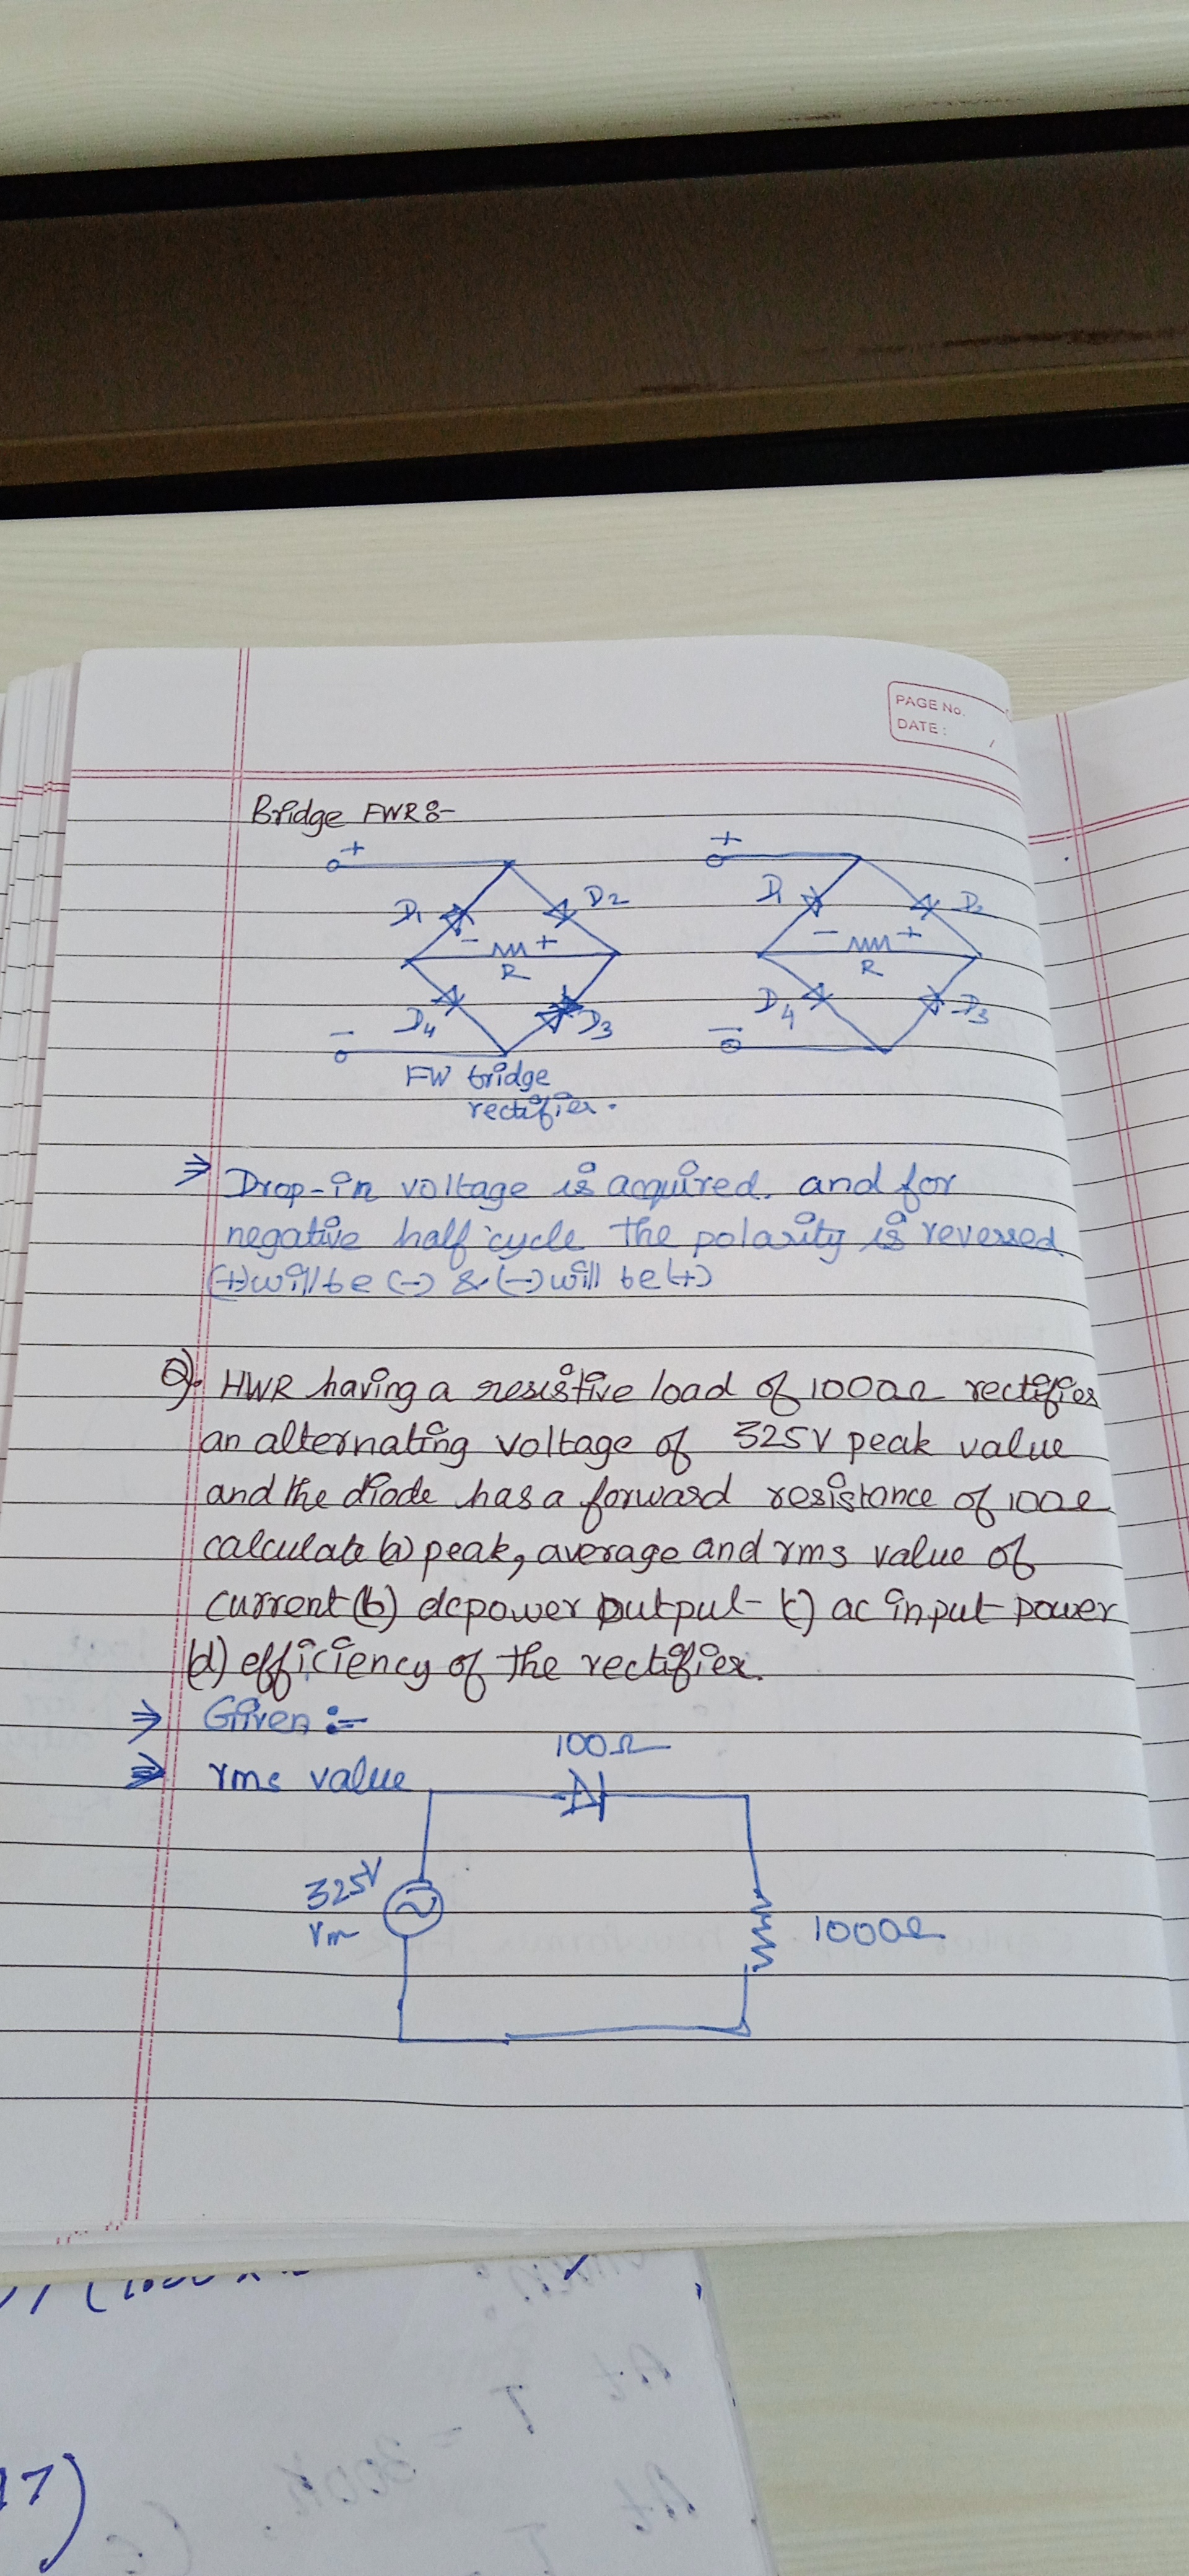 PAGE No.
DATE: /
Bridge FWR:-
+ +
D1 D2 D1 D2
- + - +
R R
D4 D3 D4 D3
- -
FW bridge
rectifier.
⇒ Drop-in voltage is acquired. and for
negative half cycle the polarity is reversed
(+) will be (-) & (-) will be (+)
Q). HWR having a resistive load of 1000Ω rectifies
an alternating voltage of 325V peak value
and the diode has a forward resistance of 100Ω
calculate (a) peak, average and rms value of
current (b) dc power output (c) ac input power
(d) efficiency of the rectifier.
⇒ Given :-
100Ω
⇒ rms value
325V
Vm
1000Ω
= 300K
17)